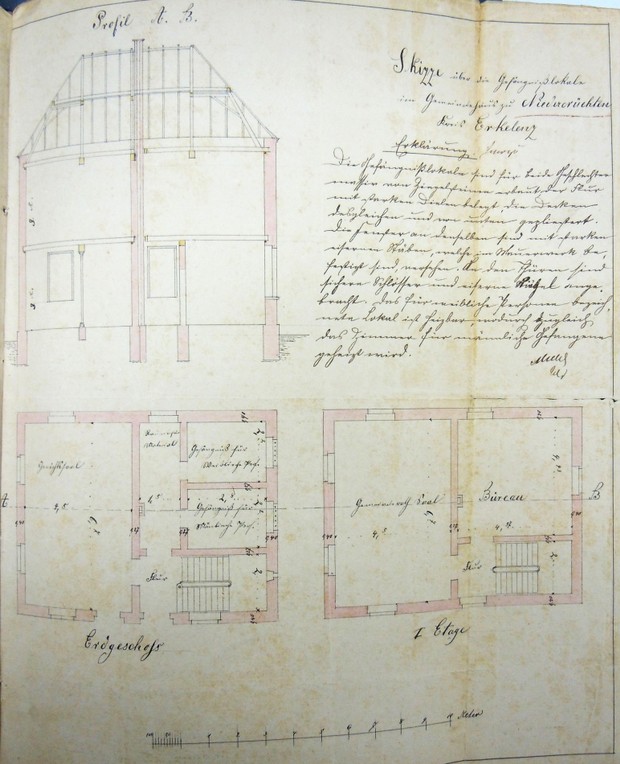 Profil A. B.
Skizze über die Gefängnißlokale
im Gemeindehaus zu Niederkrüchten
Kreis Erkelenz
Erklärung
Die Gefängnißlokale sind für beide Geschlechter
massiv von Ziegelsteinen erbaut, der Flur
mit starken Dielen belegt, die Decken
desgleichen und von unten gepliestert.
Die Fenster an denselben sind mit starken
eisernen Stäben, welche im Mauerwerk be,
festigt sind, versehen. An den Thüren sind
sichere Schlösser und eiserne Riegel ange,
bracht. Das für weibliche Personen bezeich,
nete Lokal ist heizbar, wodurch zugleich
das Zimmer für männliche Gefangene
geheizt wird.
Gefängniß für
Weibliche Pers.
Gefängniß für
Männliche Pers.
Flur
Erdgeschoß
A
Gemeinderath Saal
Büreau
Flur
B
I Etage
Meter